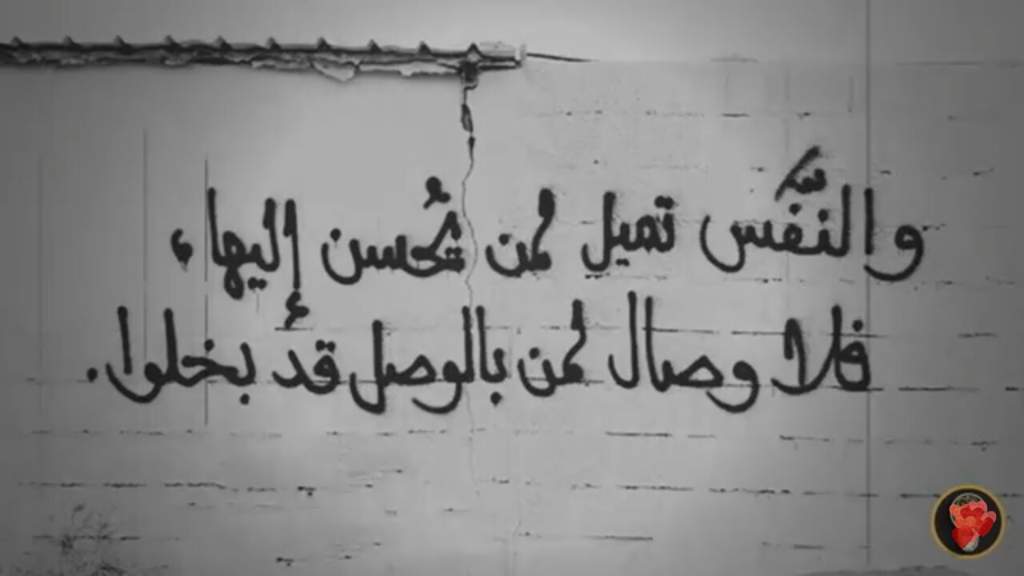 والنَّفْس تميل لمن تُحسن إليها،
فلا وصال لمن بالوصل قدْ بخلوا.